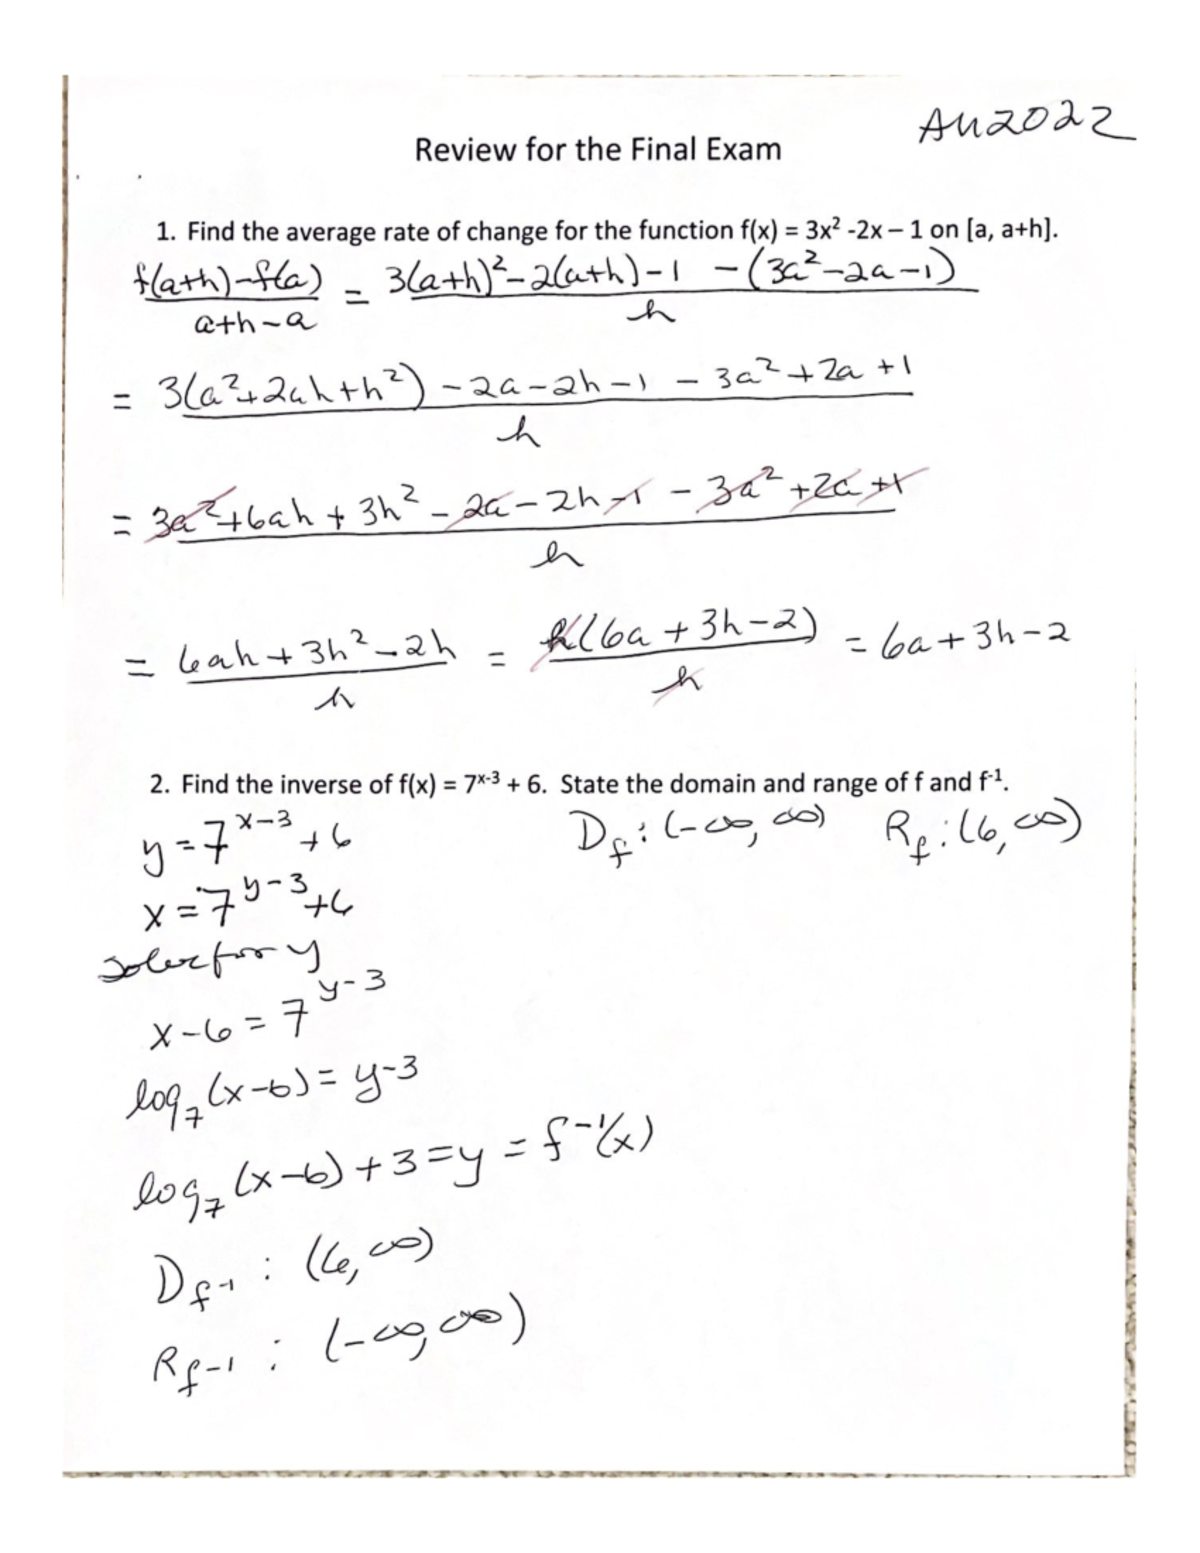 AU2022
Review for the Final Exam
1. Find the average rate of change for the function f(x) = 3x² -2x – 1 on [a, a+h].
f(a+h)-f(a) / a+h-a = 3(a+h)²-2(a+h)-1 -(3a²-2a-1) / h
= 3(a²+2ah+h²) -2a-2h-1 - 3a²+2a+1 / h
= 3a²+6ah+3h²-2a-2h-1 - 3a²+2a+1 / h
= 6ah+3h²-2h / h = h(6a+3h-2) / h = 6a+3h-2
2. Find the inverse of f(x) = 7ˣ⁻³ + 6. State the domain and range of f and f⁻¹.
y=7^(x-3)+6 D_f: (-∞, ∞) R_f: (6, ∞)
x=7^(y-3)+6
solve for y
x-6=7^(y-3)
log₇(x-6)=y-3
log₇(x-6)+3=y=f⁻¹(x)
D_f⁻¹ : (6, ∞)
R_f⁻¹ : (-∞, ∞)